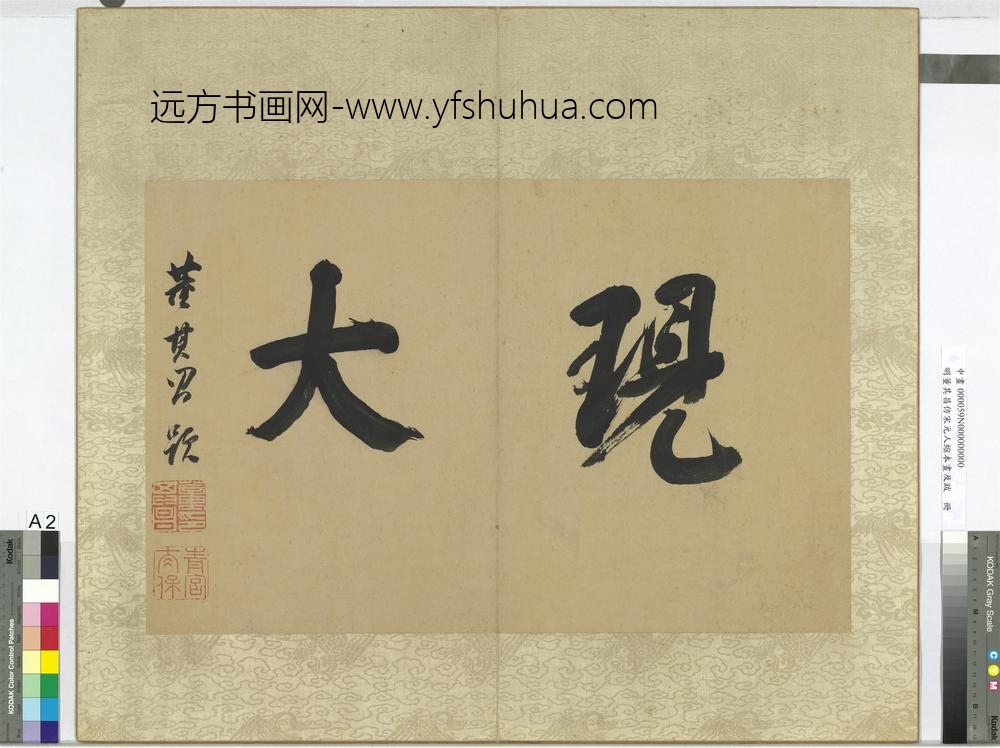 远方书画网-www.yfshuhua.com
現
大
董其昌題
董其昌印
青宮太保
中畫000059N000000000
明董其昌仿宋元人縮本畫及跋 冊
A 2
Kodak
KODAK Color Control Patches
KODAK Gray Scale
C
Y
M
Kodak
A
M
B